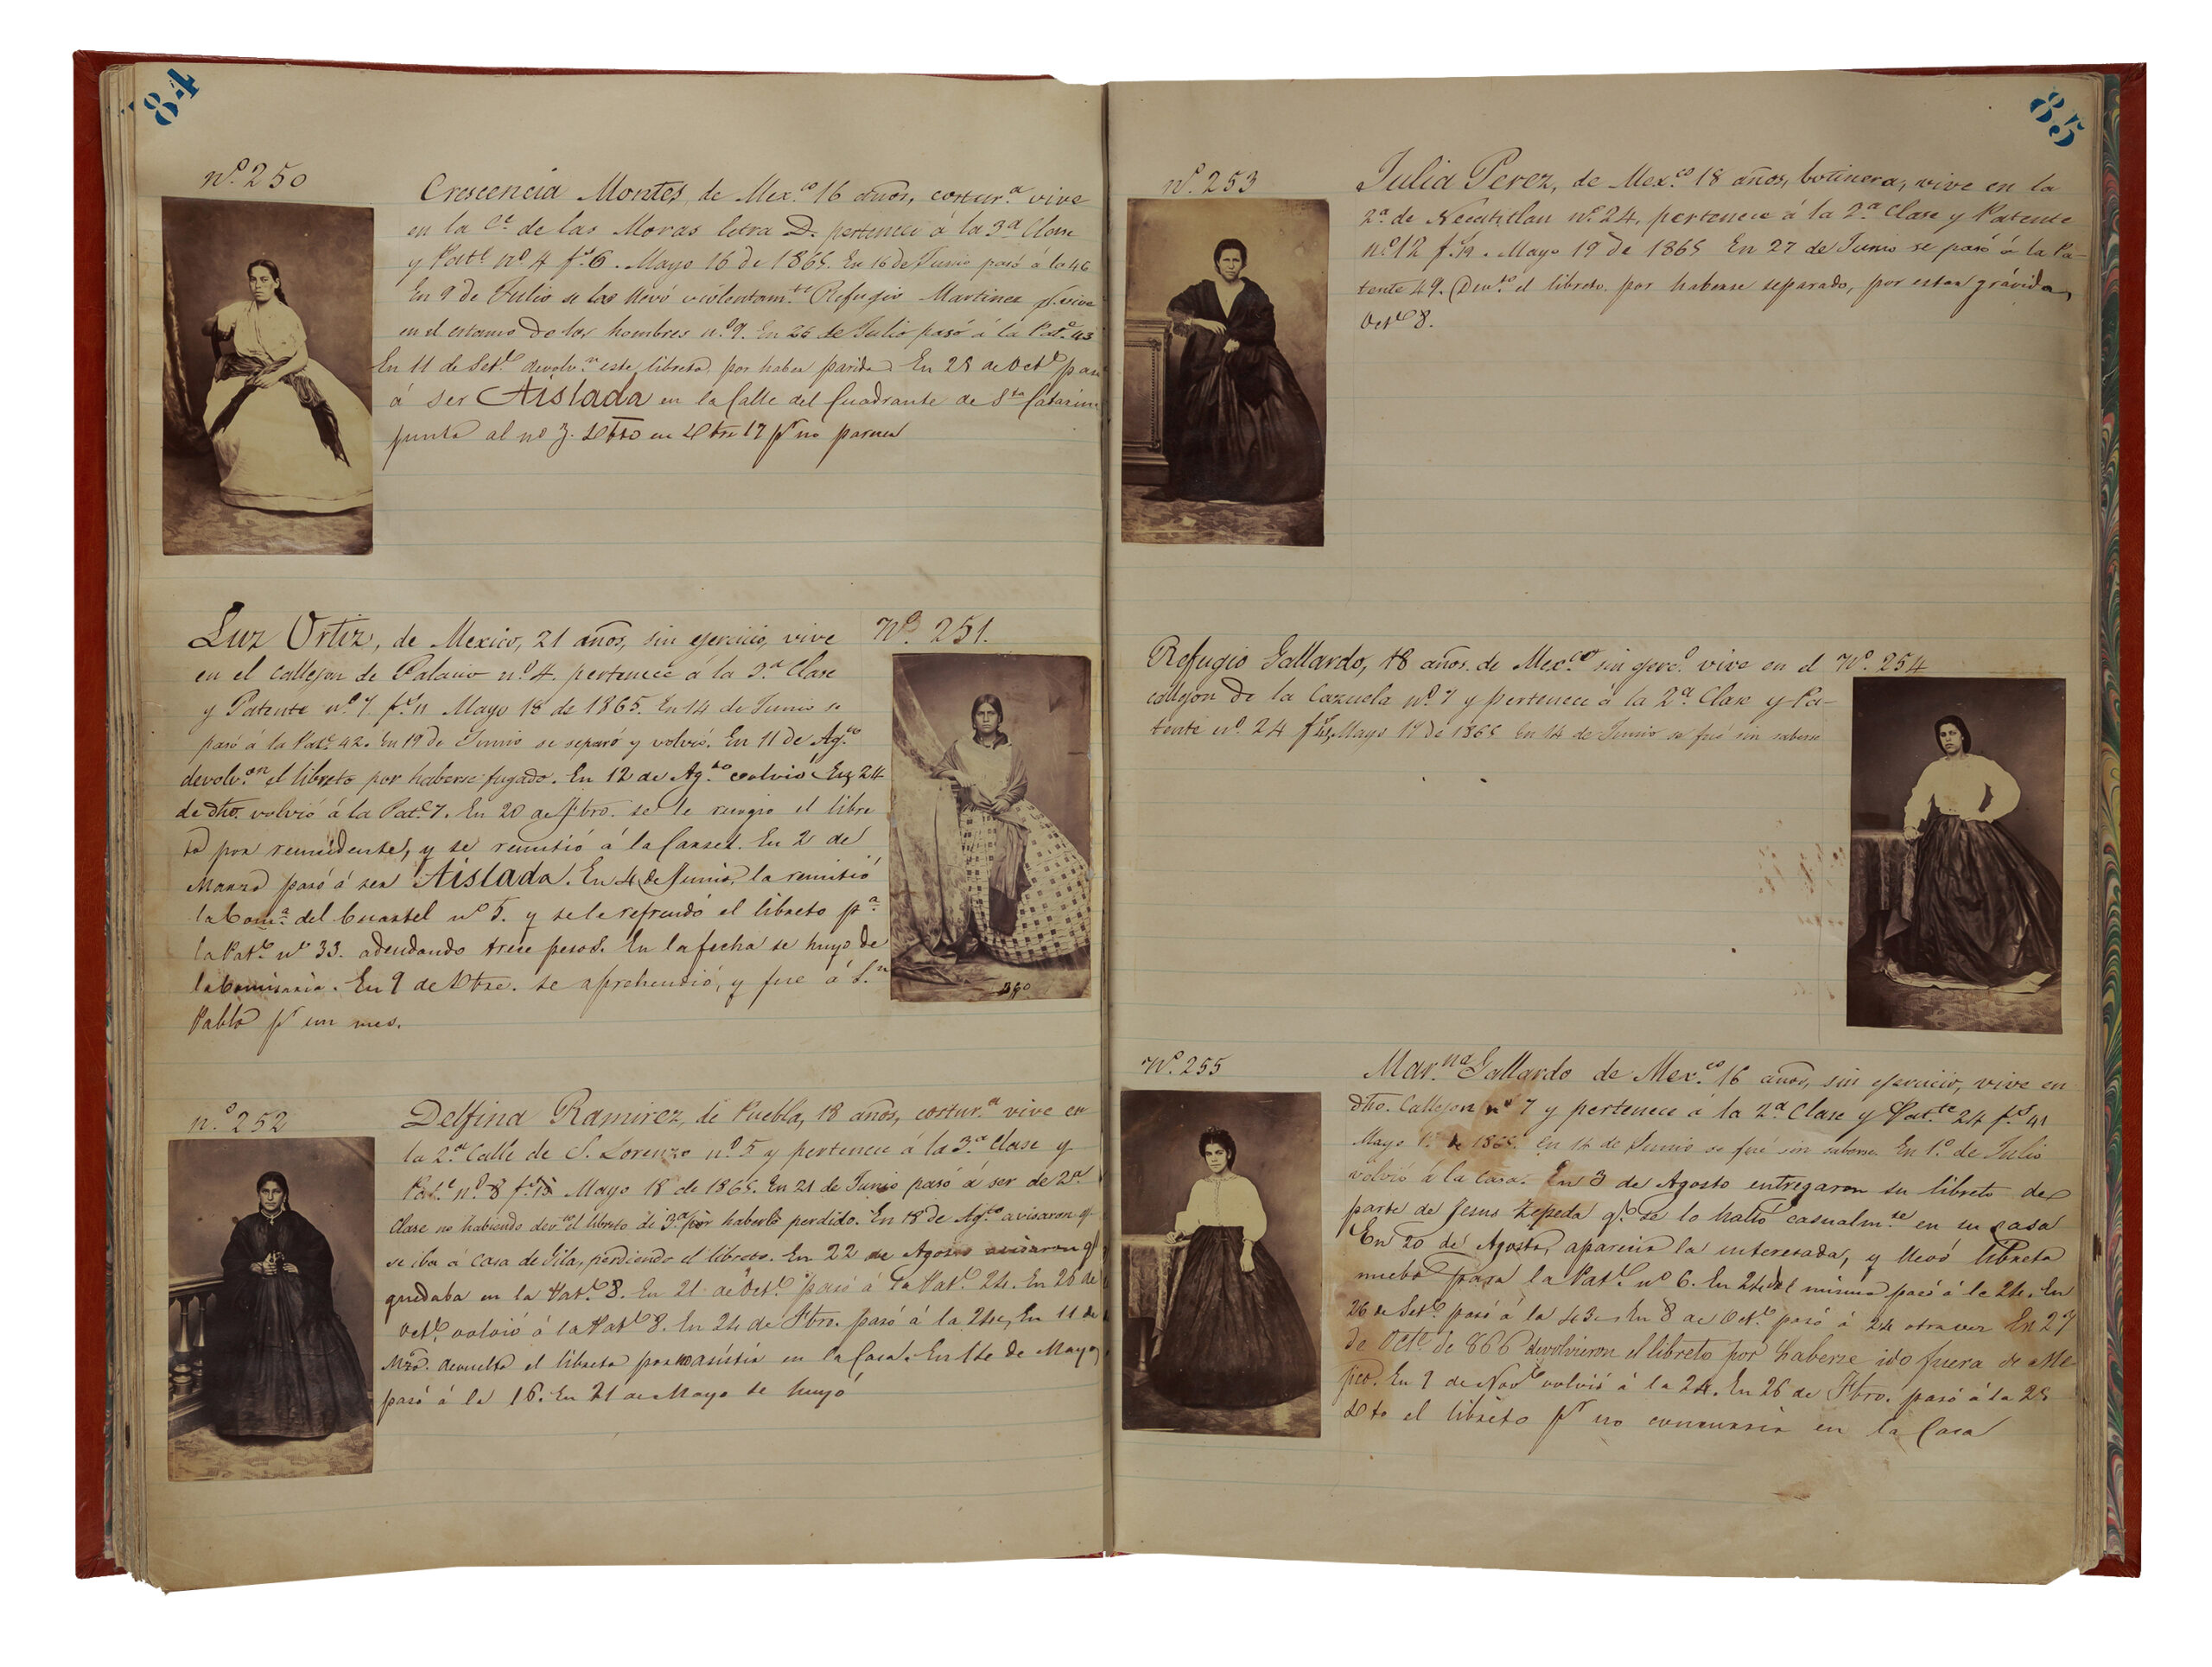 84
Nº. 250
Crescencia Montes, de Mex.co 16 años, costur.a vive
en la C.e de las Moras letra D. pertenece á la 3.a Clase
y Pat.te nº 4 f.s 6. Mayo 16 de 1865. En 16 de Junio pasó á la 46
En 9 de Julio se las llevó violentam.te Refugio Martinez q. vive
en el estanco de los hombres n.º 9. En 26 de Julio pasó á la Pat.e 43
En 11 de Set.e devolv.n este libreto por haber parido. En 25 de Oct.e pasó
á ser Aislada en la Calle del Cuadrante de S.ta Catarina
junto al nº 3. en 17 p.r no
Luz Ortiz, de Mexico, 21 años, sin ejercicio, vive
en el callejon de Palacio n.º 4. pertenece á la 3.a Clase
y Patente n.º 7. f.s 11 Mayo 18 de 1865. En 14 de Junio se
pasó á la Pat.e 42. En 19 de Junio se separó y volvió. En 11 de Ag.to
devolv.on el libreto por haberse fugado. En 12 de Ag.to volvió. En 24
de dho. volvió á la Pat.e 7. En 20 de se le recogio el libre
to por reincidente, y se remitió á la Carsel. En 2 de
Marzo pasó á ser Aislada. En 4 de Junio, la remitió
la Com.a del Cuartel nº 5. y se le refrendó el libreto p.a
la Pat.e nº 33. adeudando trece pesos. En la fecha se huyó de
la Comisaria. En 9 de se aprehendió, y fue á S.n
Pablo p.r un mes.
Nº. 251.
390
n.º 252
Delfina Ramirez, de Puebla, 18 años, costur.a vive en
la 2.a Calle de S. Lorenzo n.º 5 y pertenece á la 3.a Clase y
Pat.e n.º 8 f.s Mayo 18 de 1865. En 21 de Junio pasó á ser de 2.a
Clase no habiendo dev.to el libreto de 3.a por haberlo perdido. En 18 de Ag.to avisaron q.
se iba a casa de Gila, perdiendo el libreto. En 22 de Agosto avisaron q.
quedaba en la Pat.e 8. En 21 de Oct.e pasó á la Pat.e 24. En 25 de
Oct.e volvió á la Pat.e 8. En 24 de pasó á la 24, En 11 de
Mzo. devuelto el libreto por no asistir en la Casa. En 14 de Mayo,
pasó á la 16. En 21 de Mayo se huyó
85
Nº. 253
Julia Perez, de Mex.co 18 años, botinera, vive en la
2.a de Necatitlan n.º 24, pertenece á la 2.a Clase y Patente
n.º 12 f.s 19. Mayo 19 de 1865 En 27 de Junio se pasó á la Pa-
tente 49. Dev.to el libreto por haberse separado, por estar grávida,
Oct.e 8.
Refugio Gallardo, 18 años. de Mex.co sin ejerc.º vive en el
callejon de la Cazuela n.º 7 y pertenece á la 2.a Clase y Pa-
tente n.º 24 Mayo 17 de 1865 En 14 de Junio se fué sin saberse
Nº. 254
Nº. 255
Mar.na Gallardo de Mex.co 16 años, sin ejercicio, vive en
dho. Callejon nº 7 y pertenece á la 2.a Clase y Pat.te 24 f.s 41
Mayo de 1865. En 14 de Junio se fué sin saberse. En 1.º de Julio
volvió á la Casa. En 3 de Agosto entregaron su libreto de
parte de Jesus Zepeda q.e se lo halló casualm.te en su casa
En 20 de Agosto, aparecio la interesada, y llevó libreto
nuebo para la Pat.e nº 6. En 24 del mismo pasó á la 24. En
26 de Set.e pasó á la 43. En 8 de Oct.e pasó á 24 otra vez En 27
de Oct.e de 866 devolvieron el libreto por haberse ido fuera de Me-
jico. En 9 de Nov.e volvió á la 24. En 26 de pasó á la 25
el libreto p.r no concurrir en la Casa